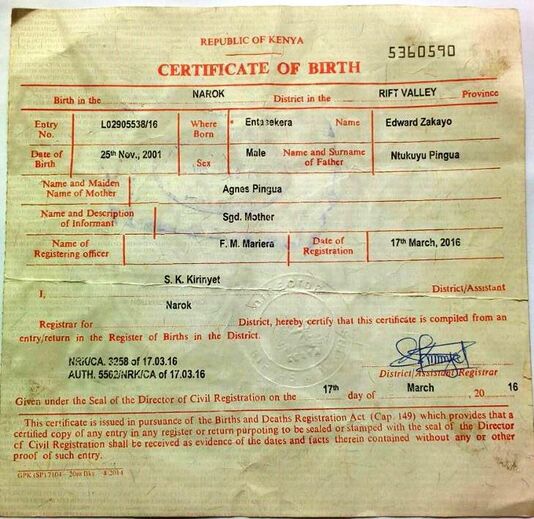 REPUBLIC OF KENYA
5360590
CERTIFICATE OF BIRTH
Birth in the NAROK District in the RIFT VALLEY Province
Entry No. L02905538/16 Where Born Entasekera Name Edward Zakayo
Date of Birth 25th Nov., 2001 Sex Male Name and Surname of Father Ntukuyu Pingua
Name and Maiden Name of Mother Agnes Pingua
Name and Description of Informant Sgd. Mother
Name of Registering officer F. M. Mariera Date of Registration 17th March, 2016
I, S. K. Kirinyet District/Assistant
Registrar for Narok District, hereby certify that this certificate is compiled from an
entry/return in the Register of Births in the District.
NRK/CA. 3258 of 17.03.16
AUTH. 5562/NRK/CA of 17.03.16
District/Assistant Registrar
Given under the Seal of the Director of Civil Registration on the 17th day of March, 20 16
This certificate is issued in pursuance of the Births and Deaths Registration Act (Cap. 149) which provides that a
certified copy of any entry in any register or return purposing to be sealed or stamped with the seal of the Director
of Civil Registration shall be received as evidence of the dates and facts therein contained without any or other
proof of such entry.
GPK (SP) 7104—20m Bks—4/2014